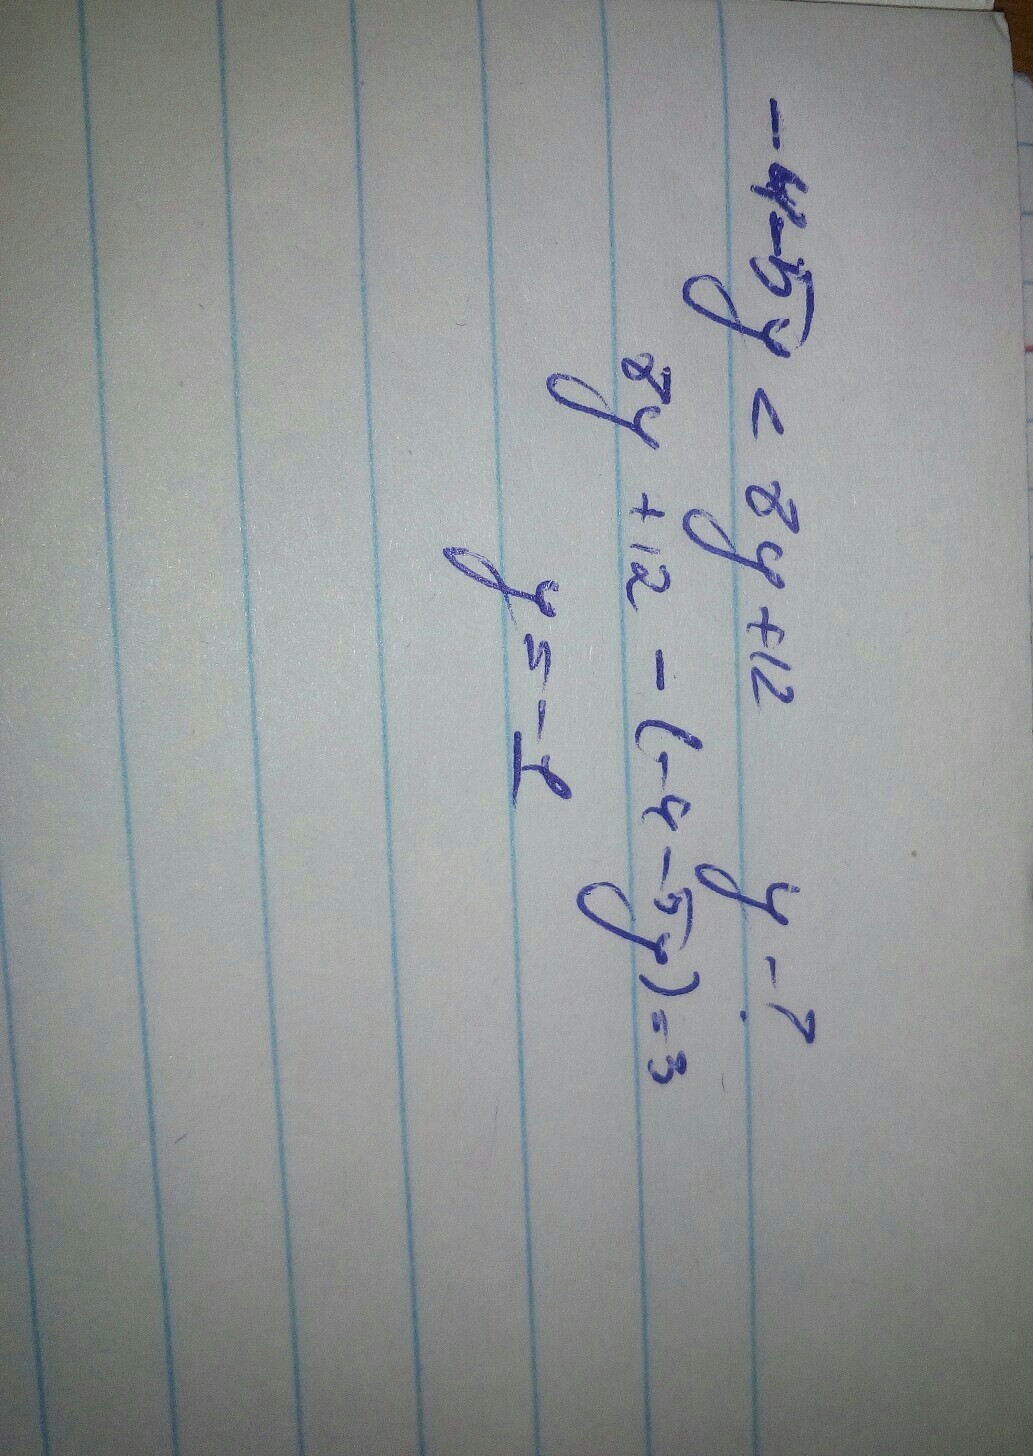 -4-5y < 8y+12 y-?
8y +12 - (-4-5y) = 3
y = -1